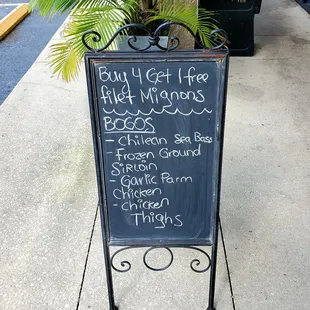 Buy 4 Get 1 free
filet Mignons
BOGOS
- Chilean Sea Bass
- Frozen Ground
Sirloin
- Garlic Parm
Chicken
- Chicken
Thighs